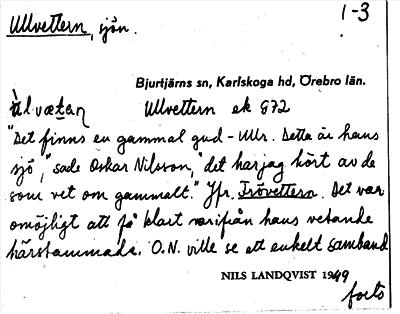 Ullvettern, sjön.
1-3
Bjurtjärns sn, Karlskoga hd, Örebro län.
Ullvettern ek 972
"Det finns en gammal gud - Ullr. Detta är hans
sjö", sade Oskar Nilsson, "det har jag hört av de
som vet om gammalt." Jfr. Frövettern. Det var
omöjligt att få klart varifrån hans vetande
härstammade. O.N. ville se ett enkelt samband
NILS LANDQVIST 1949
forts